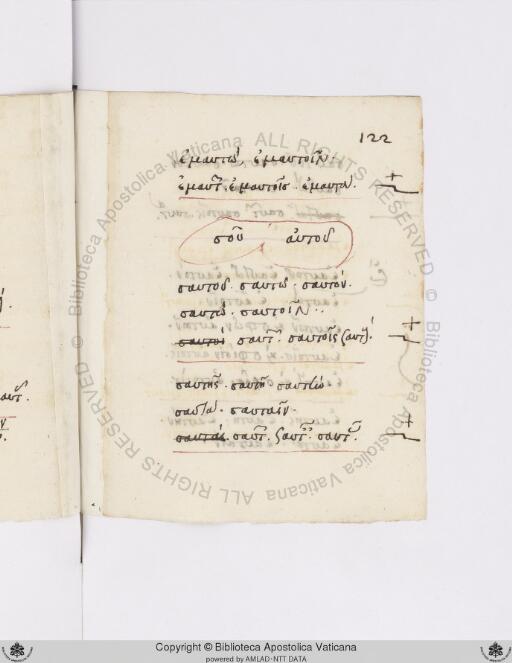 122
ἐμαυτώ, ἐμαυτοῖν.
ἐμαυτ. ἐμαυτοῖς. ἐμαυτ.
σοῦ αὐτοῦ
σαυτοῦ. σαυτῷ. σαυτόν.
σαυτώ. σαυτοῖν.
σαυτοί σαυτ. σαυτοῖς
σαυτῆς. σαυτῇ. σαυτήν
σαυτά. σαυταῖν.
σαυταί. σαυτ. σαυτ. σαυτ.
ALL RIGHTS RESERVED © Biblioteca Apostolica Vaticana
Copyright © Biblioteca Apostolica Vaticana
powered by AMLAD-NTT DATA